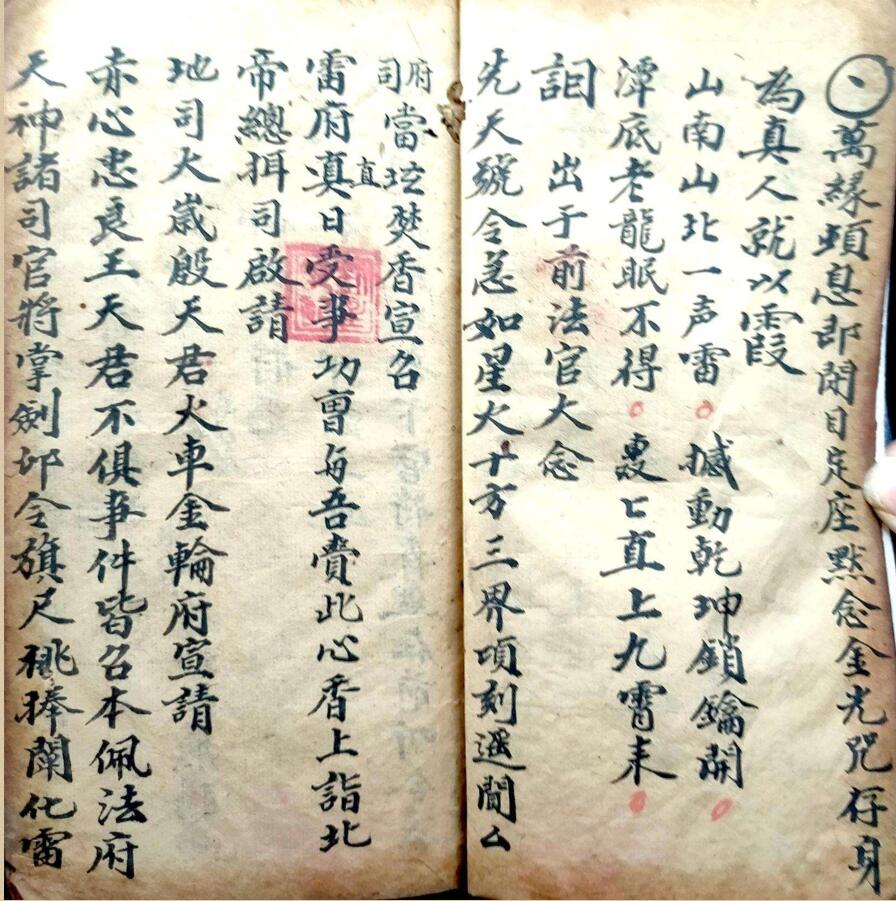 萬緣頓息即閉目定座默念金光咒存身
為真人就以霞
山南山北一声雷 撼動乾坤鎖鑰開
潭底老龍眠不得 轟匕直上九霄来
詛 出于前法官大念
先天號令急如星火十方三界項刻遥聞厶
府司當坛焚香宣召
雷府真日直受事功曹每吾賫此心香上詣北
帝總押司啟請
地司大歲殷天君火車金輪府宣請
赤心忠良王天君不俱事件皆召本佩法府
天神諸司官將掌劍印令旗尺捧闌化雷